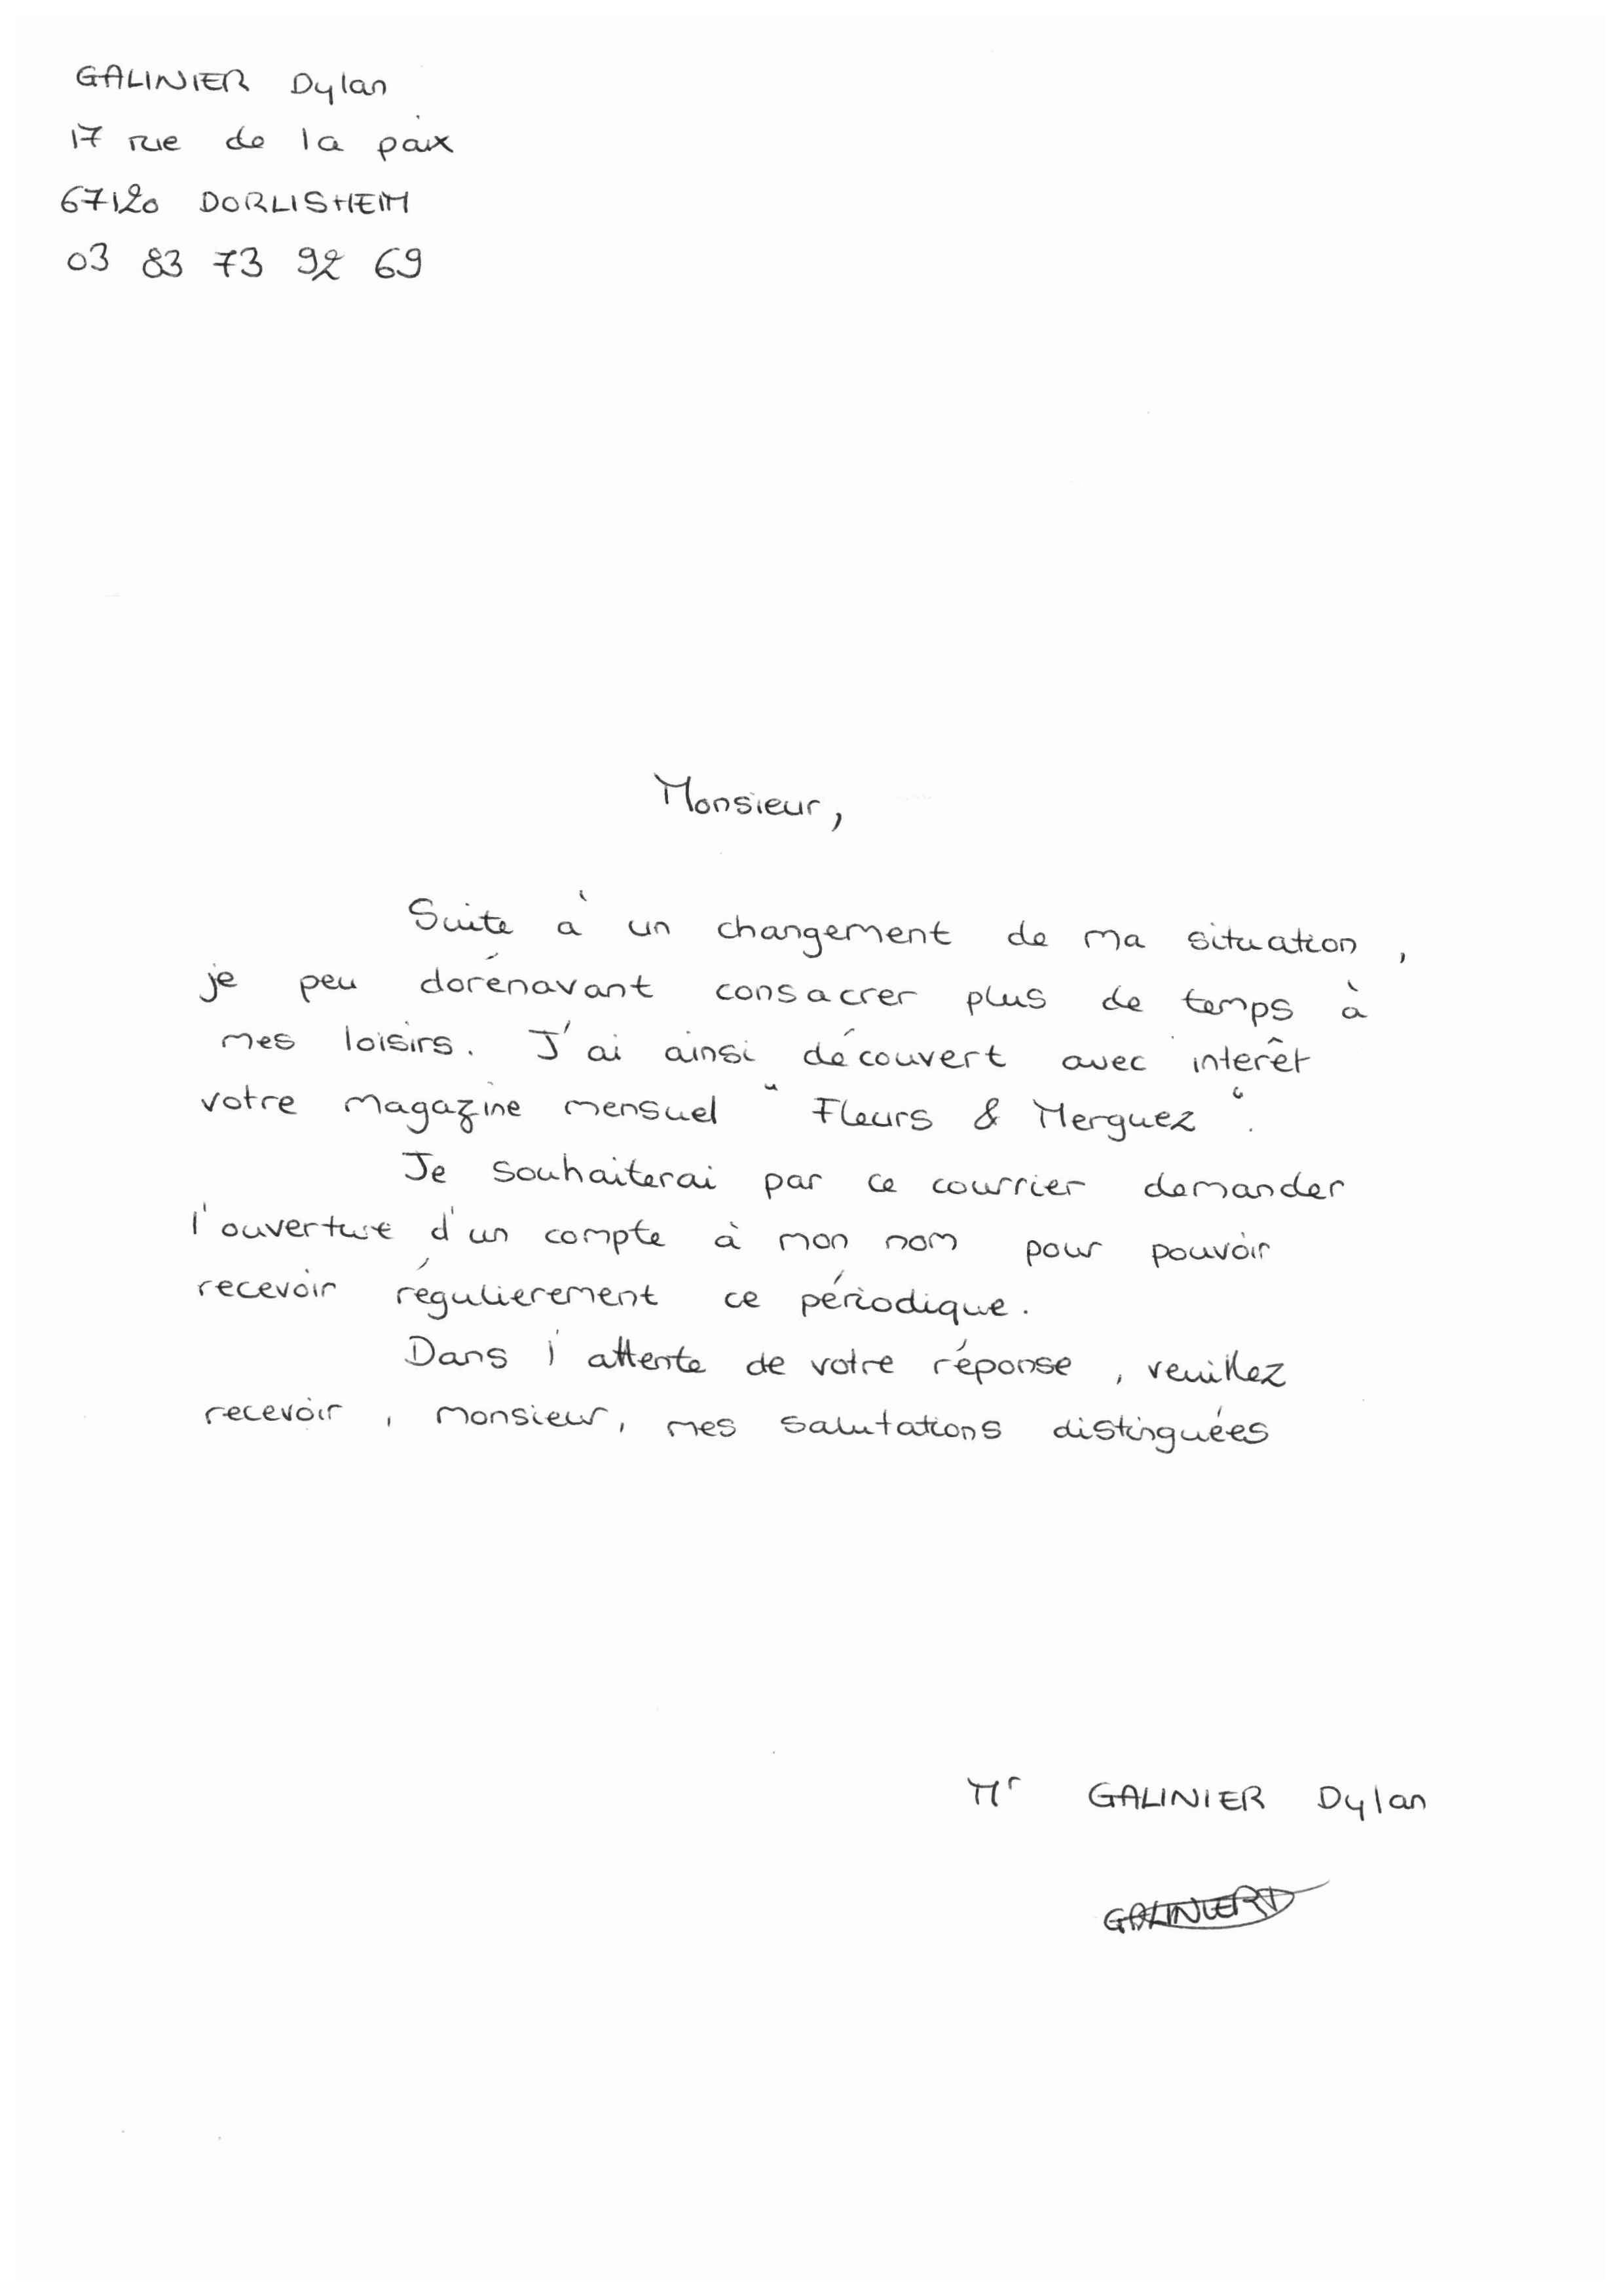 GALINIER Dylan
17 rue de la paix
67120 DORLISHEIM
03 83 73 92 69
Monsieur,
Suite à un changement de ma situation,
je peu dorénavant consacrer plus de temps à
mes loisirs. J'ai ainsi découvert avec interêt
votre magazine mensuel "Fleurs & Merguez".
Je souhaiterai par ce courrier demander
l'ouverture d'un compte à mon nom pour pouvoir
recevoir régulierement ce périodique.
Dans l'attente de votre réponse, veuillez
recevoir, monsieur, mes salutations distinguées
Mr GALINIER Dylan
GALINIER D